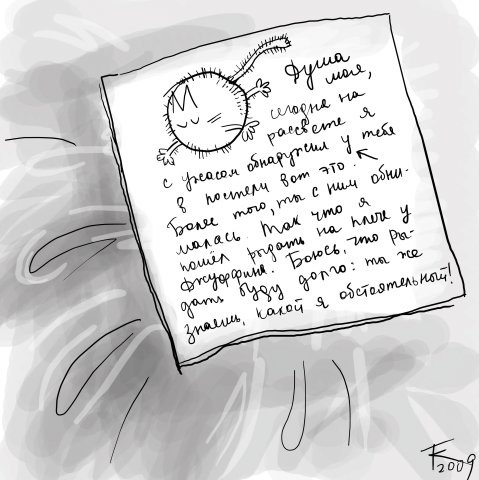 Душа
моя,
сегодня на
рассвете я
с ужасом обнаружил у тебя
в постели вот это.
Более того, ты с ним обни-
малась. Так что я
пошёл рыдать на плече у
Джузеппина. Боюсь, что ры-
дать буду долго: ты же
знаешь, какой я обстоятельный!
TK
2009